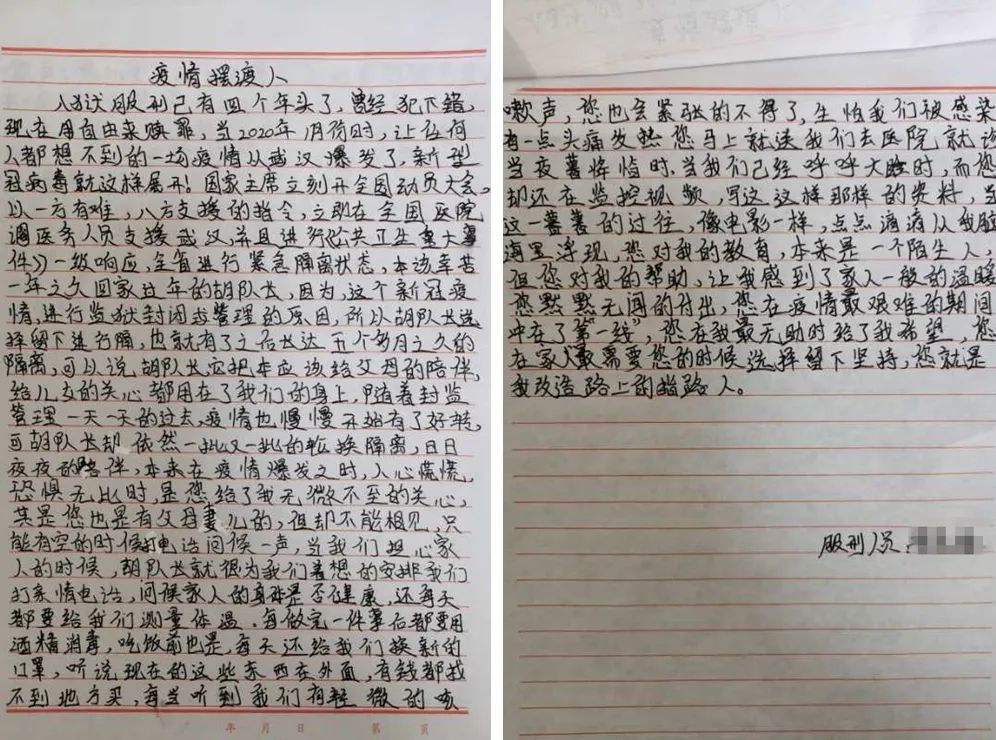 疫情摆渡人
入狱服刑已有四个年头了，曾经犯下错，
现在用自由来赎罪，当2020年1月份时，让任何
人都想不到的一场疫情从武汉爆发了，新型
冠病毒就这样展开！国家主席立刻开全国动员大会。
以一方有难，八方支援的指令，立即在全国医院
调医务人员支援武汉，并且进行《公共卫生重大事
件》一级响应，全省进行紧急隔离状态，本该辛苦
一年之久回家过年的胡队长，因为，这个新冠疫
情，进行监狱封闭式管理的原因，所以胡队长选
择留下进行隔，也就有了之后长达五个多月之久的
隔离，可以说胡队长应把本应该给父母的陪伴，
给儿女的关心都用在了我们的身上，随着封监
管理一天一天的过去，疫情也慢慢开始有了好转，
可胡队长却依然一批又一批的轮换隔离，日日
夜夜的陪伴，本来在疫情爆发之时，人心慌慌，
恐惧无比时是您给了我无微不至的关心，
其是您也是有父母妻儿的，但却不能相见，只
能有空的时候打电话问候一声，当我们担心家
人的时候，胡队长就很为我们着想的安排我们
打亲情电话，问候家人的身体是否健康，还每天
都要给我们测量体温，每做完一件事后都要用
酒精消毒，吃饭前也是，每天还给我们换新的
口罩，听说现在的这些东西在外面，有钱都找
不到地方买，每当听到我们有轻微的咳
年 月 日 第 页
嗽声，您也会紧张的不得了，生怕我们被感染
有一点头痛发热您马上就送我们去医院就诊
当夜幕降临时，当我们已经呼呼大睡时，而您
却还在监控视频，写这这样那样的资料，当
这一幕幕的过往，像电影一样，点点滴滴从我脑
海里浮现，您对我的教育，本来是一个陌生人，
但您对我的帮助，让我感到了家人一般的温暖
您默默无闻的付出，您在疫情最艰难的期间
冲在了第“一线”，您在我最无助时给了我希望，您
在家人最需要您的时候选择留下坚持，您就是
我改造路上的指路人。
服刑人员：